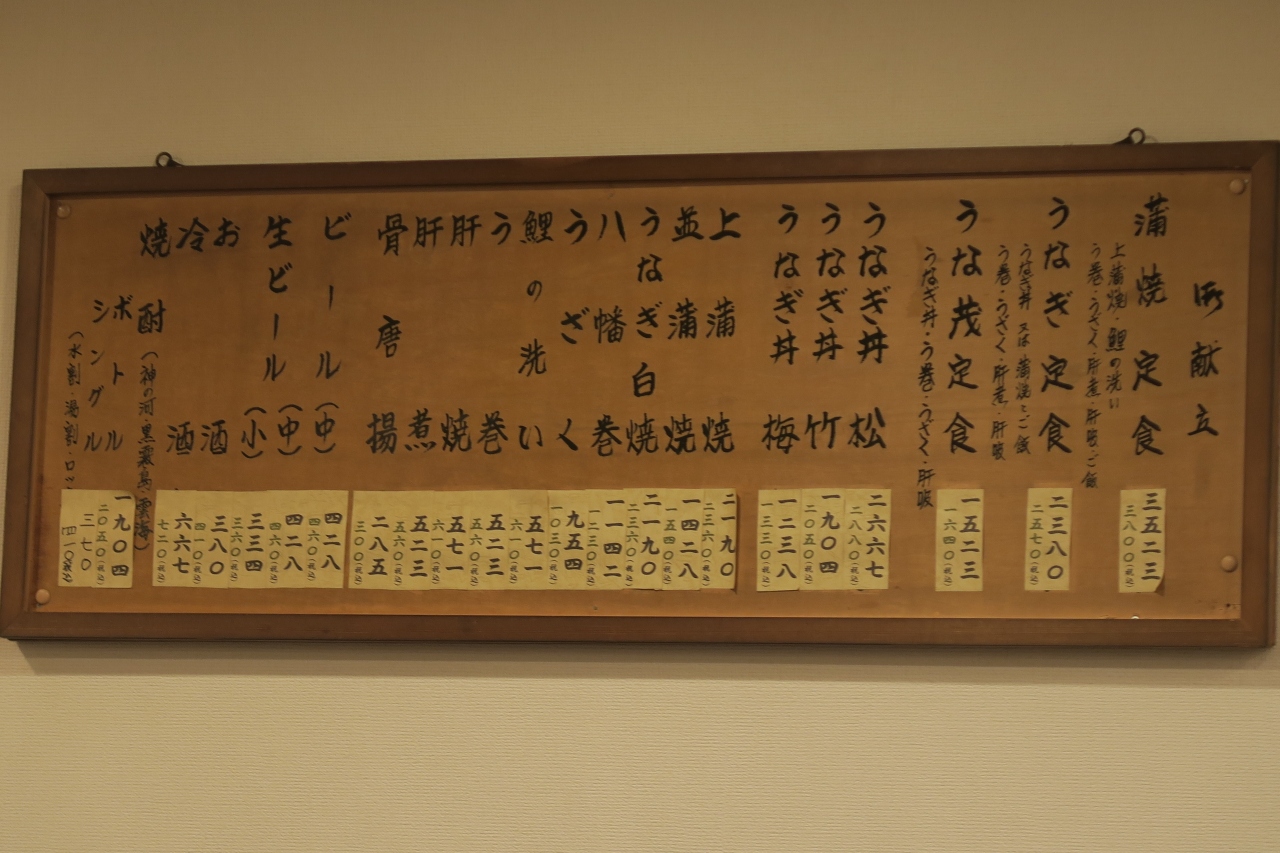 御献立
蒲焼定食
三五二三
三八〇〇(税込)
上蒲焼・鯉の洗い
う巻・うざく・肝煮・肝吸・ご飯
うなぎ定食
二三八〇
二五七〇(税込)
うなぎ丼 又は 蒲焼とご飯
う巻・うざく・肝煮・肝吸
うな茂定食
一五二三
一六四〇(税込)
うなぎ丼・う巻・うざく・肝吸
うなぎ丼 松
二六六七
二八八〇(税込)
うなぎ丼 竹
一九〇四
二〇五〇(税込)
うなぎ丼 梅
一二三八
一三三〇(税込)
上蒲焼
二一九〇
二三六〇(税込)
並蒲焼
一四二八
一五四〇(税込)
うなぎ白焼
二一九〇
二三六〇(税込)
八幡巻
一一四二
一二三〇(税込)
うざく
九五四
一〇三〇(税込)
鯉の洗い
五七一
六一〇(税込)
う巻
五二三
五六〇(税込)
肝焼
五七一
六一〇(税込)
肝煮
五二三
五六〇(税込)
骨唐揚
二八五
三〇〇(税込)
ビール(中)
四二八
四六〇(税込)
生ビール(中)
四二八
四六〇(税込)
(小)
三三四
三六〇(税込)
お酒
三八〇
四一〇(税込)
冷酒
六六七
七二〇(税込)
焼酎(神の河・黒霧島・雲海)
ボトル
一九〇四
二〇五〇(税込)
シングル
三七〇
四一〇(税込)
(水割・湯割・ロッ